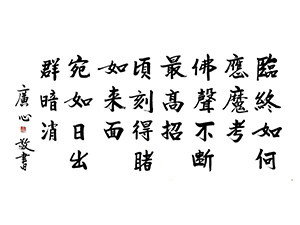 臨終如何
應魔考
佛聲不断
最高招
頃刻得睹
如来面
宛如日出
群暗消
廣心敬書